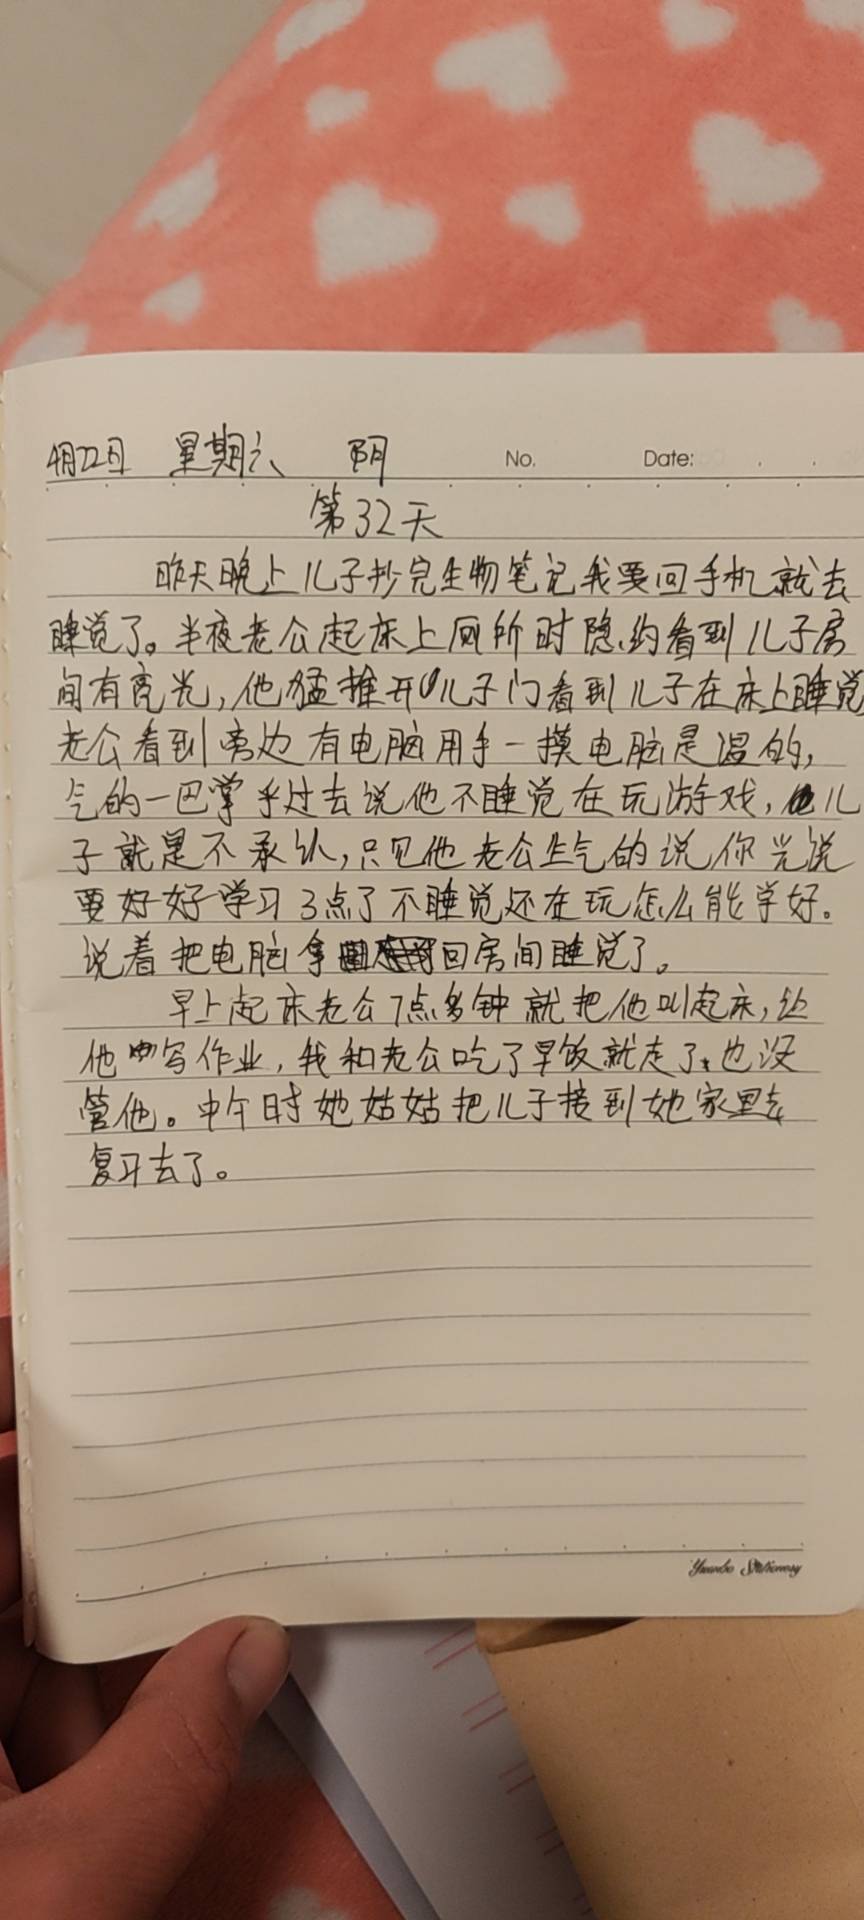 4月22日 星期六 阴 No. Date:
第32天
昨天晚上儿子抄完生物笔记我要回手机就去
睡觉了。半夜老公起床上厕所时隐约看到儿子房
间有亮光,他猛推开儿子门看到儿子在床上睡觉
老公看到旁边有电脑用手一摸电脑是温的,
气的一巴掌乎过去说他不睡觉在玩游戏,儿
子就是不承认,只见他老公生气的说你光说
要好好学习3点了不睡觉还在玩怎么能学好。
说着把电脑拿回房间睡觉了。
早上起床老公7点多钟就把他叫起床,让
他写作业,我和老公吃了早饭就走了,也没
管他。中午时她姑姑把儿子接到她家里去
复习去了。
Yuanbo Stationery